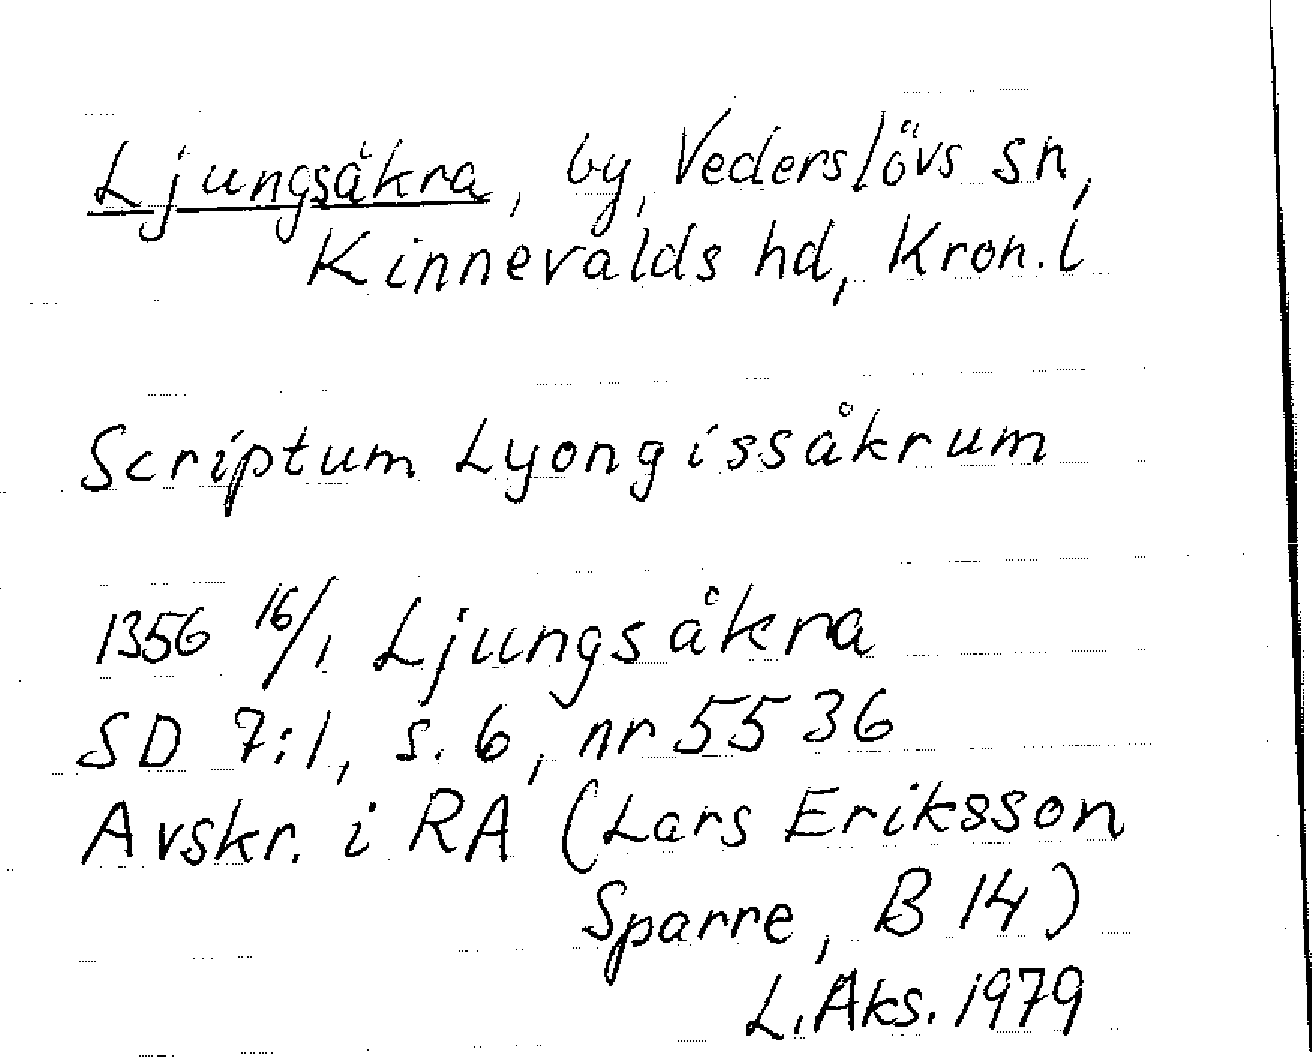 Ljungsåkra, by, Vederslövs sn,
Kinnevalds hd, Kron. l
Scriptum Lyongissåkrum
1356 16/1. Ljungsåkra
SD 7:1, s. 6, nr 5536
Avskr. i RA (Lars Eriksson
Sparre, B 14)
L. Aks. 1979